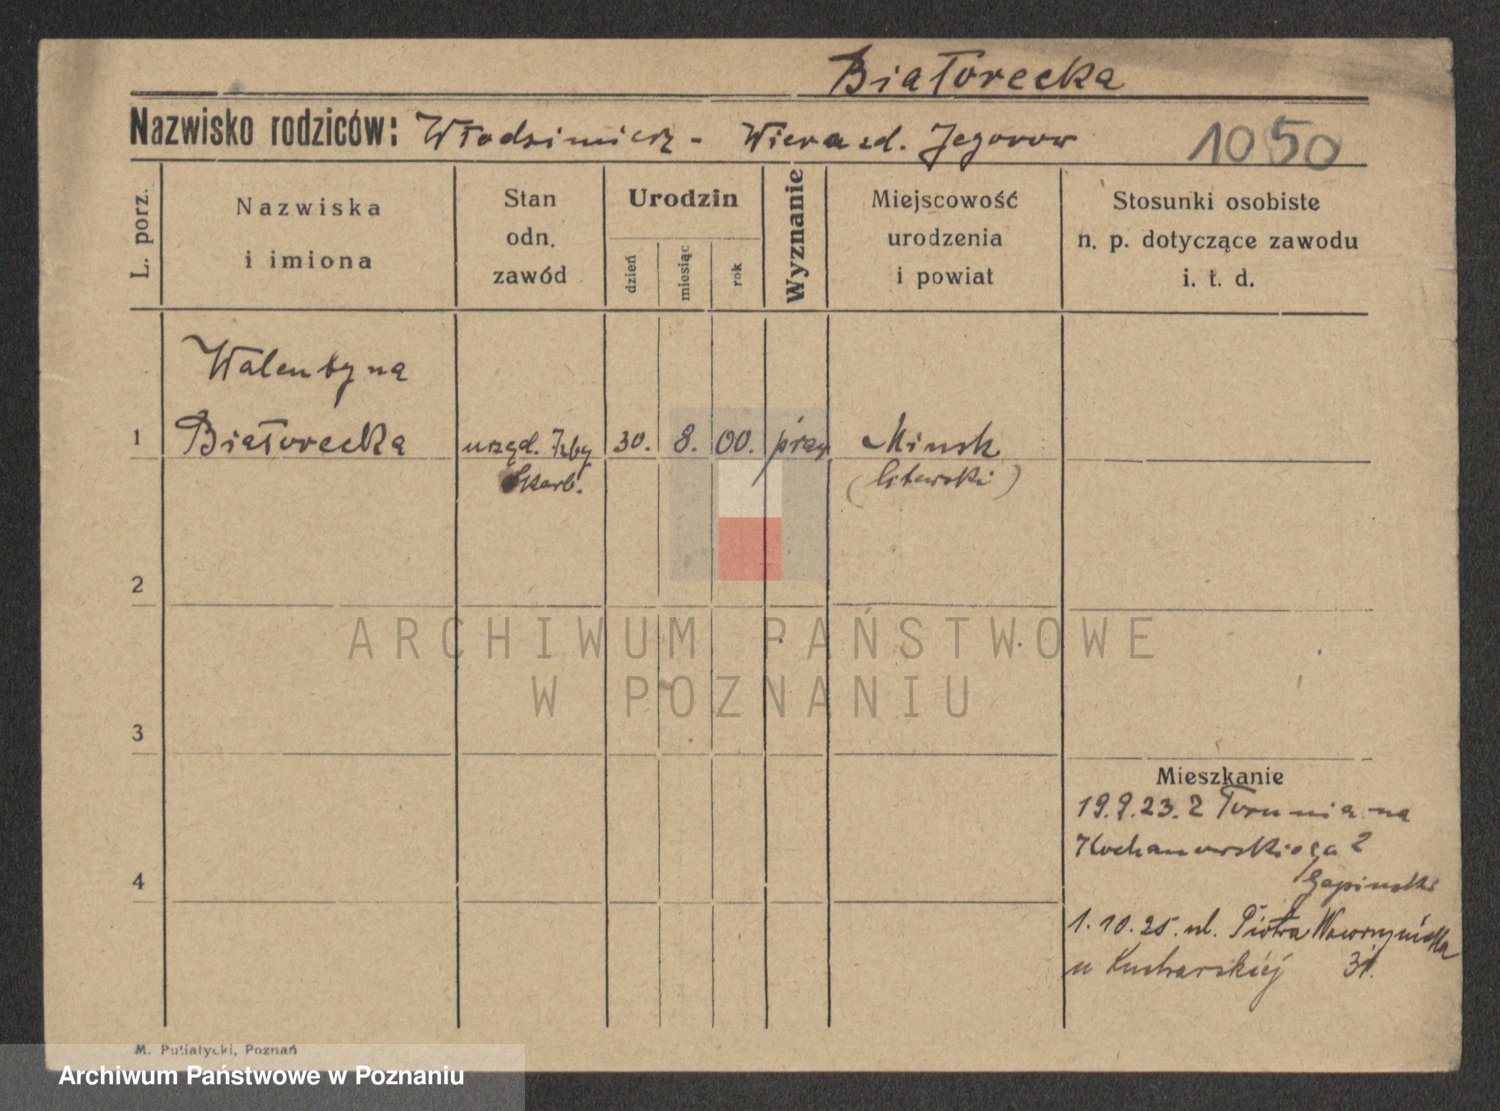 Białorecka
Nazwisko rodziców: Włodzimierz - Wiera zd. Jegorow
1050
L. porz.
Nazwiska
i imiona
Stan
odn.
zawód
Urodzin
dzień
miesiąc
rok
Wyznanie
Miejscowość
urodzenia
i powiat
Stosunki osobiste
n. p. dotyczące zawodu
i. t. d.
Walentyna
1 Białorecka urzęd. Izby 30. 8. 00. praw Minsk
Skarb. (litewski)
2
ARCHIWUM PAŃSTWOWE
W POZNANIU
3
Mieszkanie
19.9.23. z Torunia na
Kochanowskiego 2
4
1.10.25. ul. Piotra Wawrzyniaka
u Kucharskiej 31.
M. Putiatycki, Poznań
Archiwum Państwowe w Poznaniu